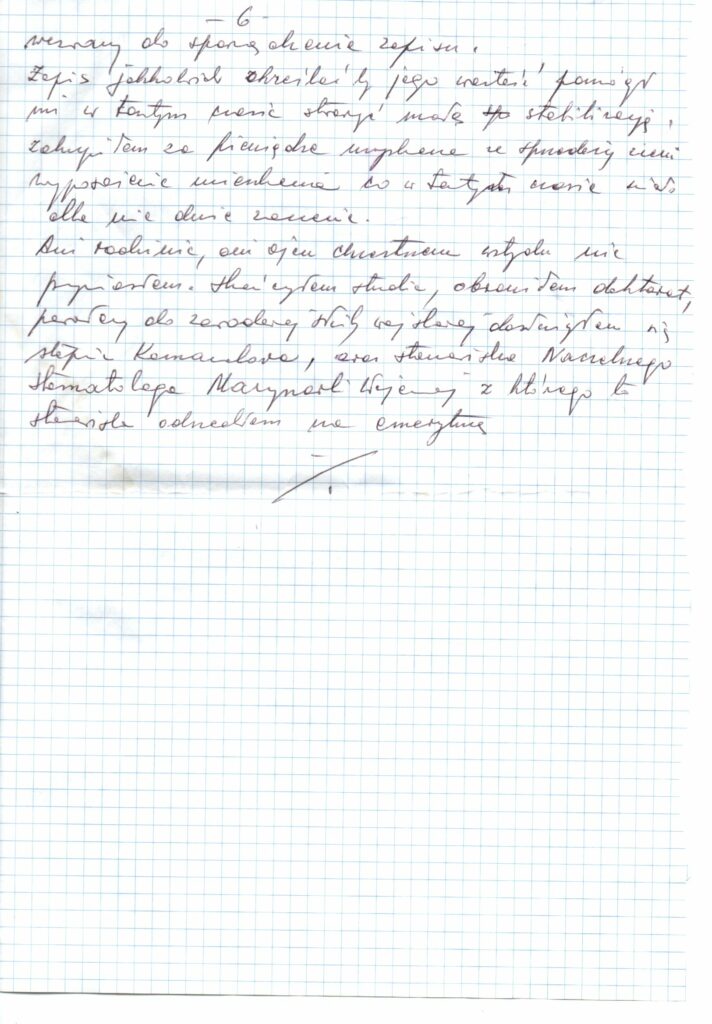 – 6 –
wezwany do sporządzenia zapisu.
Zapis jakkolwiek określać by jego wartość, pomógł
mi w tamtym czasie stworzyć małą stabilizację,
zakupiłem za pieniądze uzyskane ze sprzedaży ziemi
wyposażenie mieszkania co w tamtym czasie miało
dla mnie duże znaczenie.
Ani rodzinie, ani ojcu chrzestnemu wstydu nie
przyniosłem. Skończyłem studia, obroniłem doktorat,
powołany do zawodowej służby wojskowej dosłużyłem się
stopnia Komandora, oraz stanowiska Naczelnego
Stomatologa Marynarki Wojennej z którego to
stanowiska odszedłem na emeryturę